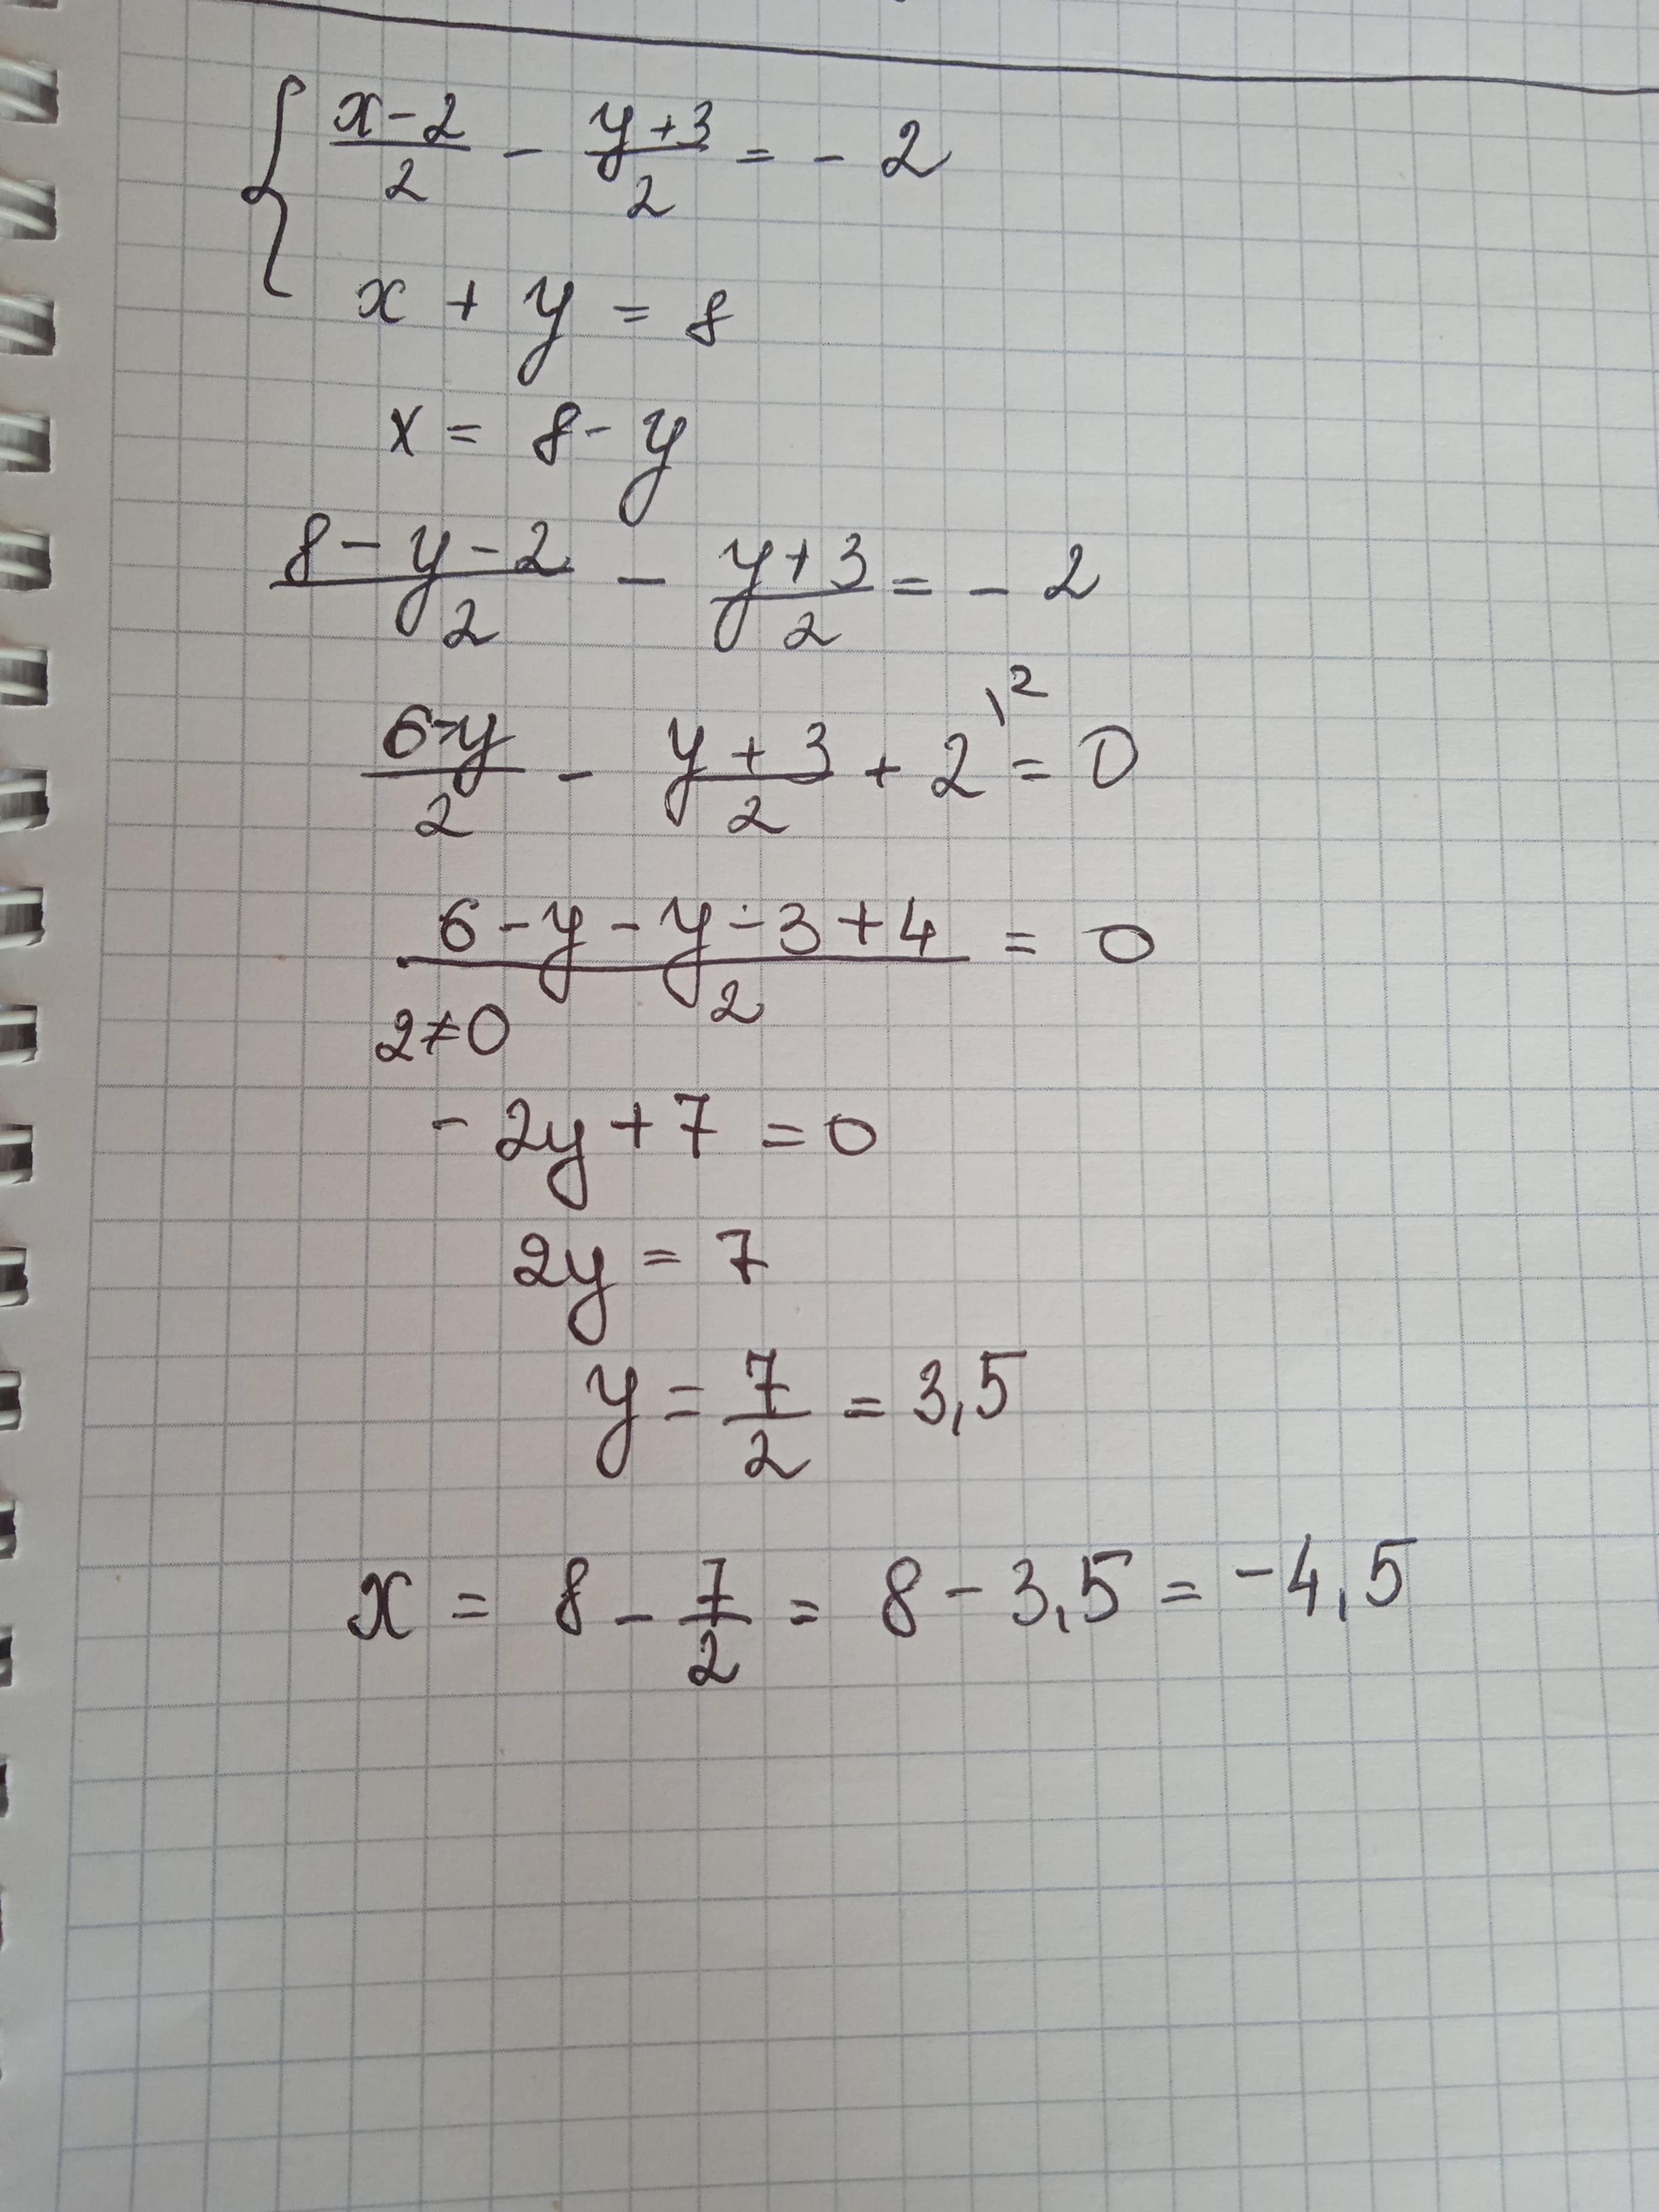 { (x-2)/2 - (y+3)/2 = - 2
x + y = 8
x = 8 - y
(8 - y - 2)/2 - (y+3)/2 = - 2
(6-y)/2 - (y+3)/2 + 2 \2 = 0
(6 - y - y - 3 + 4)/2 = 0
2≠0
- 2y + 7 = 0
2y = 7
y = 7/2 = 3,5
x = 8 - 7/2 = 8 - 3,5 = -4,5